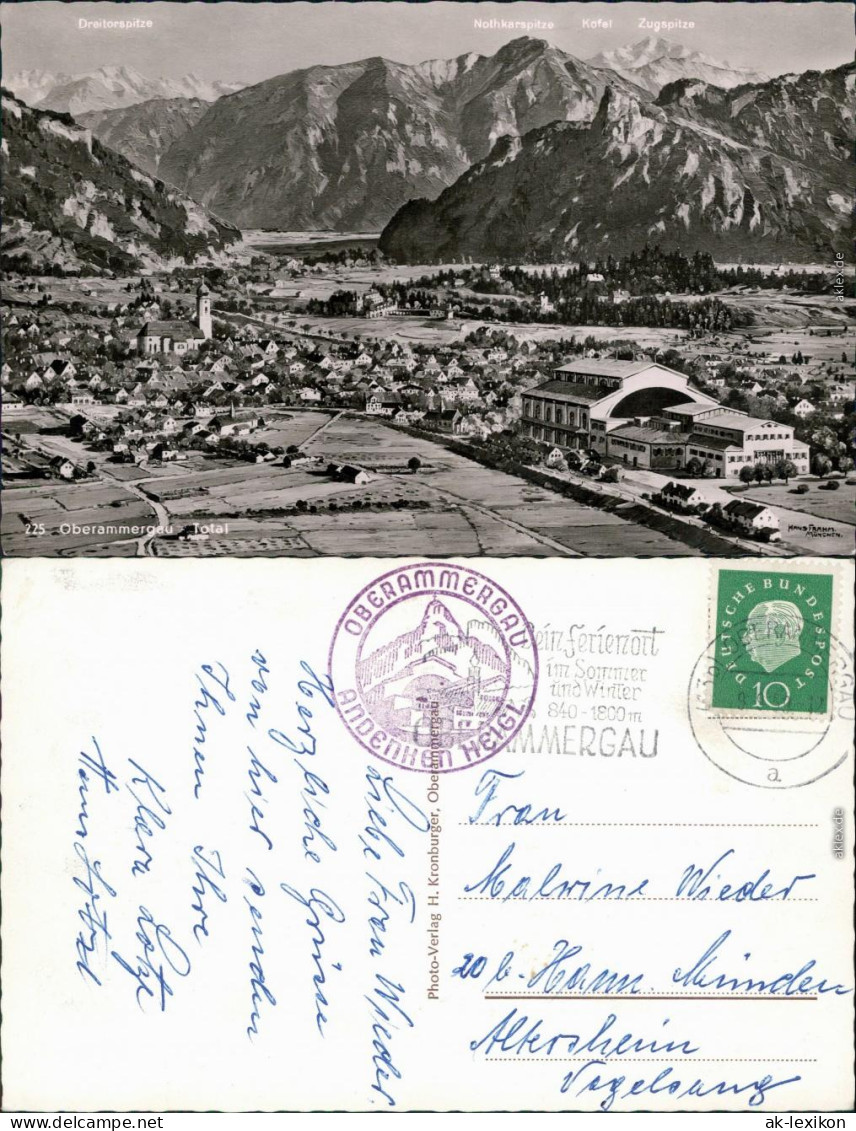 Dreitorspitze
Nothkarspitze Kofel Zugspitze
225 Oberammergau Total
HANS FRAHM
MÜNCHEN.
OBERAMMERGAU
ANDENKEN HEIGL
Dein Ferienort
im Sommer
und Winter
840-1800 m
OBERAMMERGAU
DEUTSCHE BUNDESPOST
10
a
Liebe Frau Wieder.
Herzliche Grüsse
von hier senden
Ihnen Ihre
Klara Lotze
Photo-Verlag H. Kronburger, Oberammergau
Frau
Malwine Wieder
20 b. Hann. Münden
Altersheim
Vogelsang
akpool.de
www.delcampe.net The-ak-man
ak-lexikon